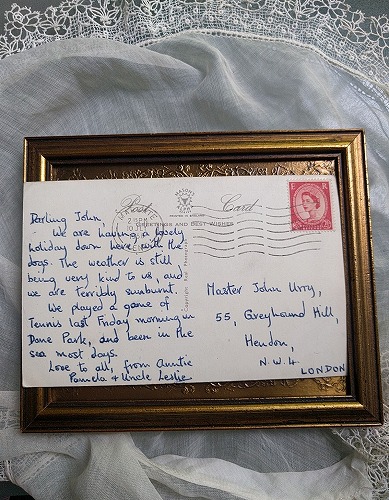 Post Card
MASON'S
PRINTED IN ENGLAND
GREETINGS AND BEST WISHES
2:15PM
Darling John,
We are having a lovely
holiday down here with the
dogs. The weather is still
being very kind to us, and
we are terribly sunburnt.
We played a game of
Tennis last Friday morning in
Dane Park, and been in the
sea most days.
Love to all, from Auntie
Pamela & Uncle Leslie
Copyright
Master John Urry,
55, Greyhound Hill,
Hendon,
N.W.4
LONDON